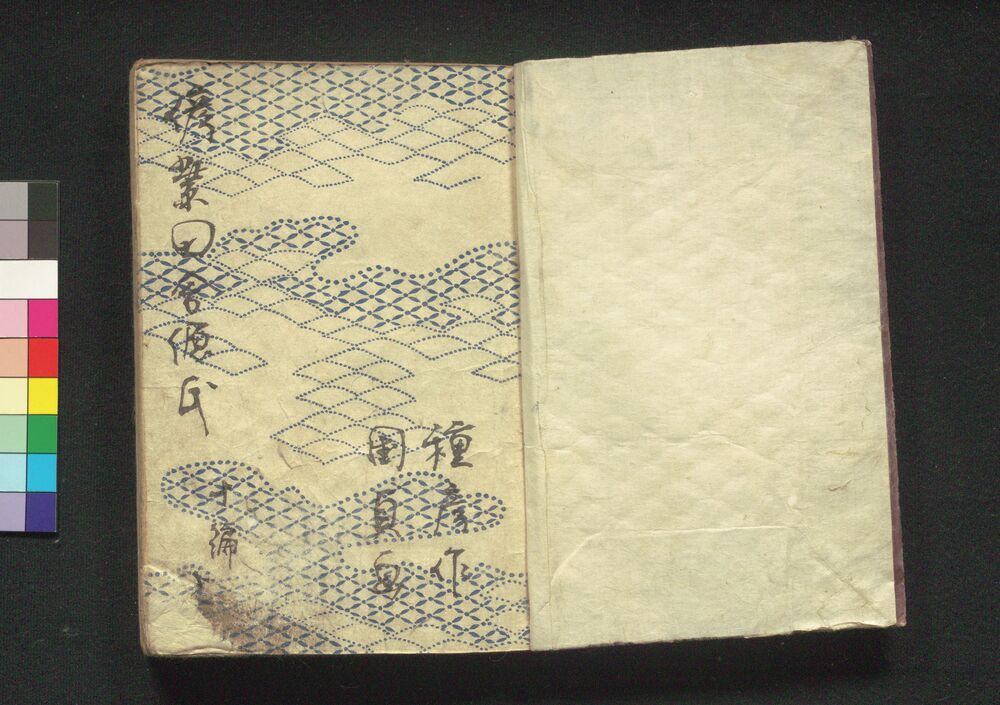 種彦作
國貞画
偐紫田舎源氏
十編